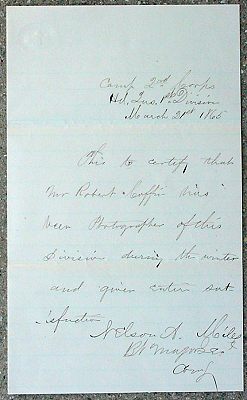 Camp 2nd Corps
Hd. Qrs. 1st Division
March 21st 1865
This to certify that
Mr Robert Coffin has
been Photographer of this
Division during the winter
and given entire sat
isfaction
Nelson A. Miles
Bt Major Gen
Comg